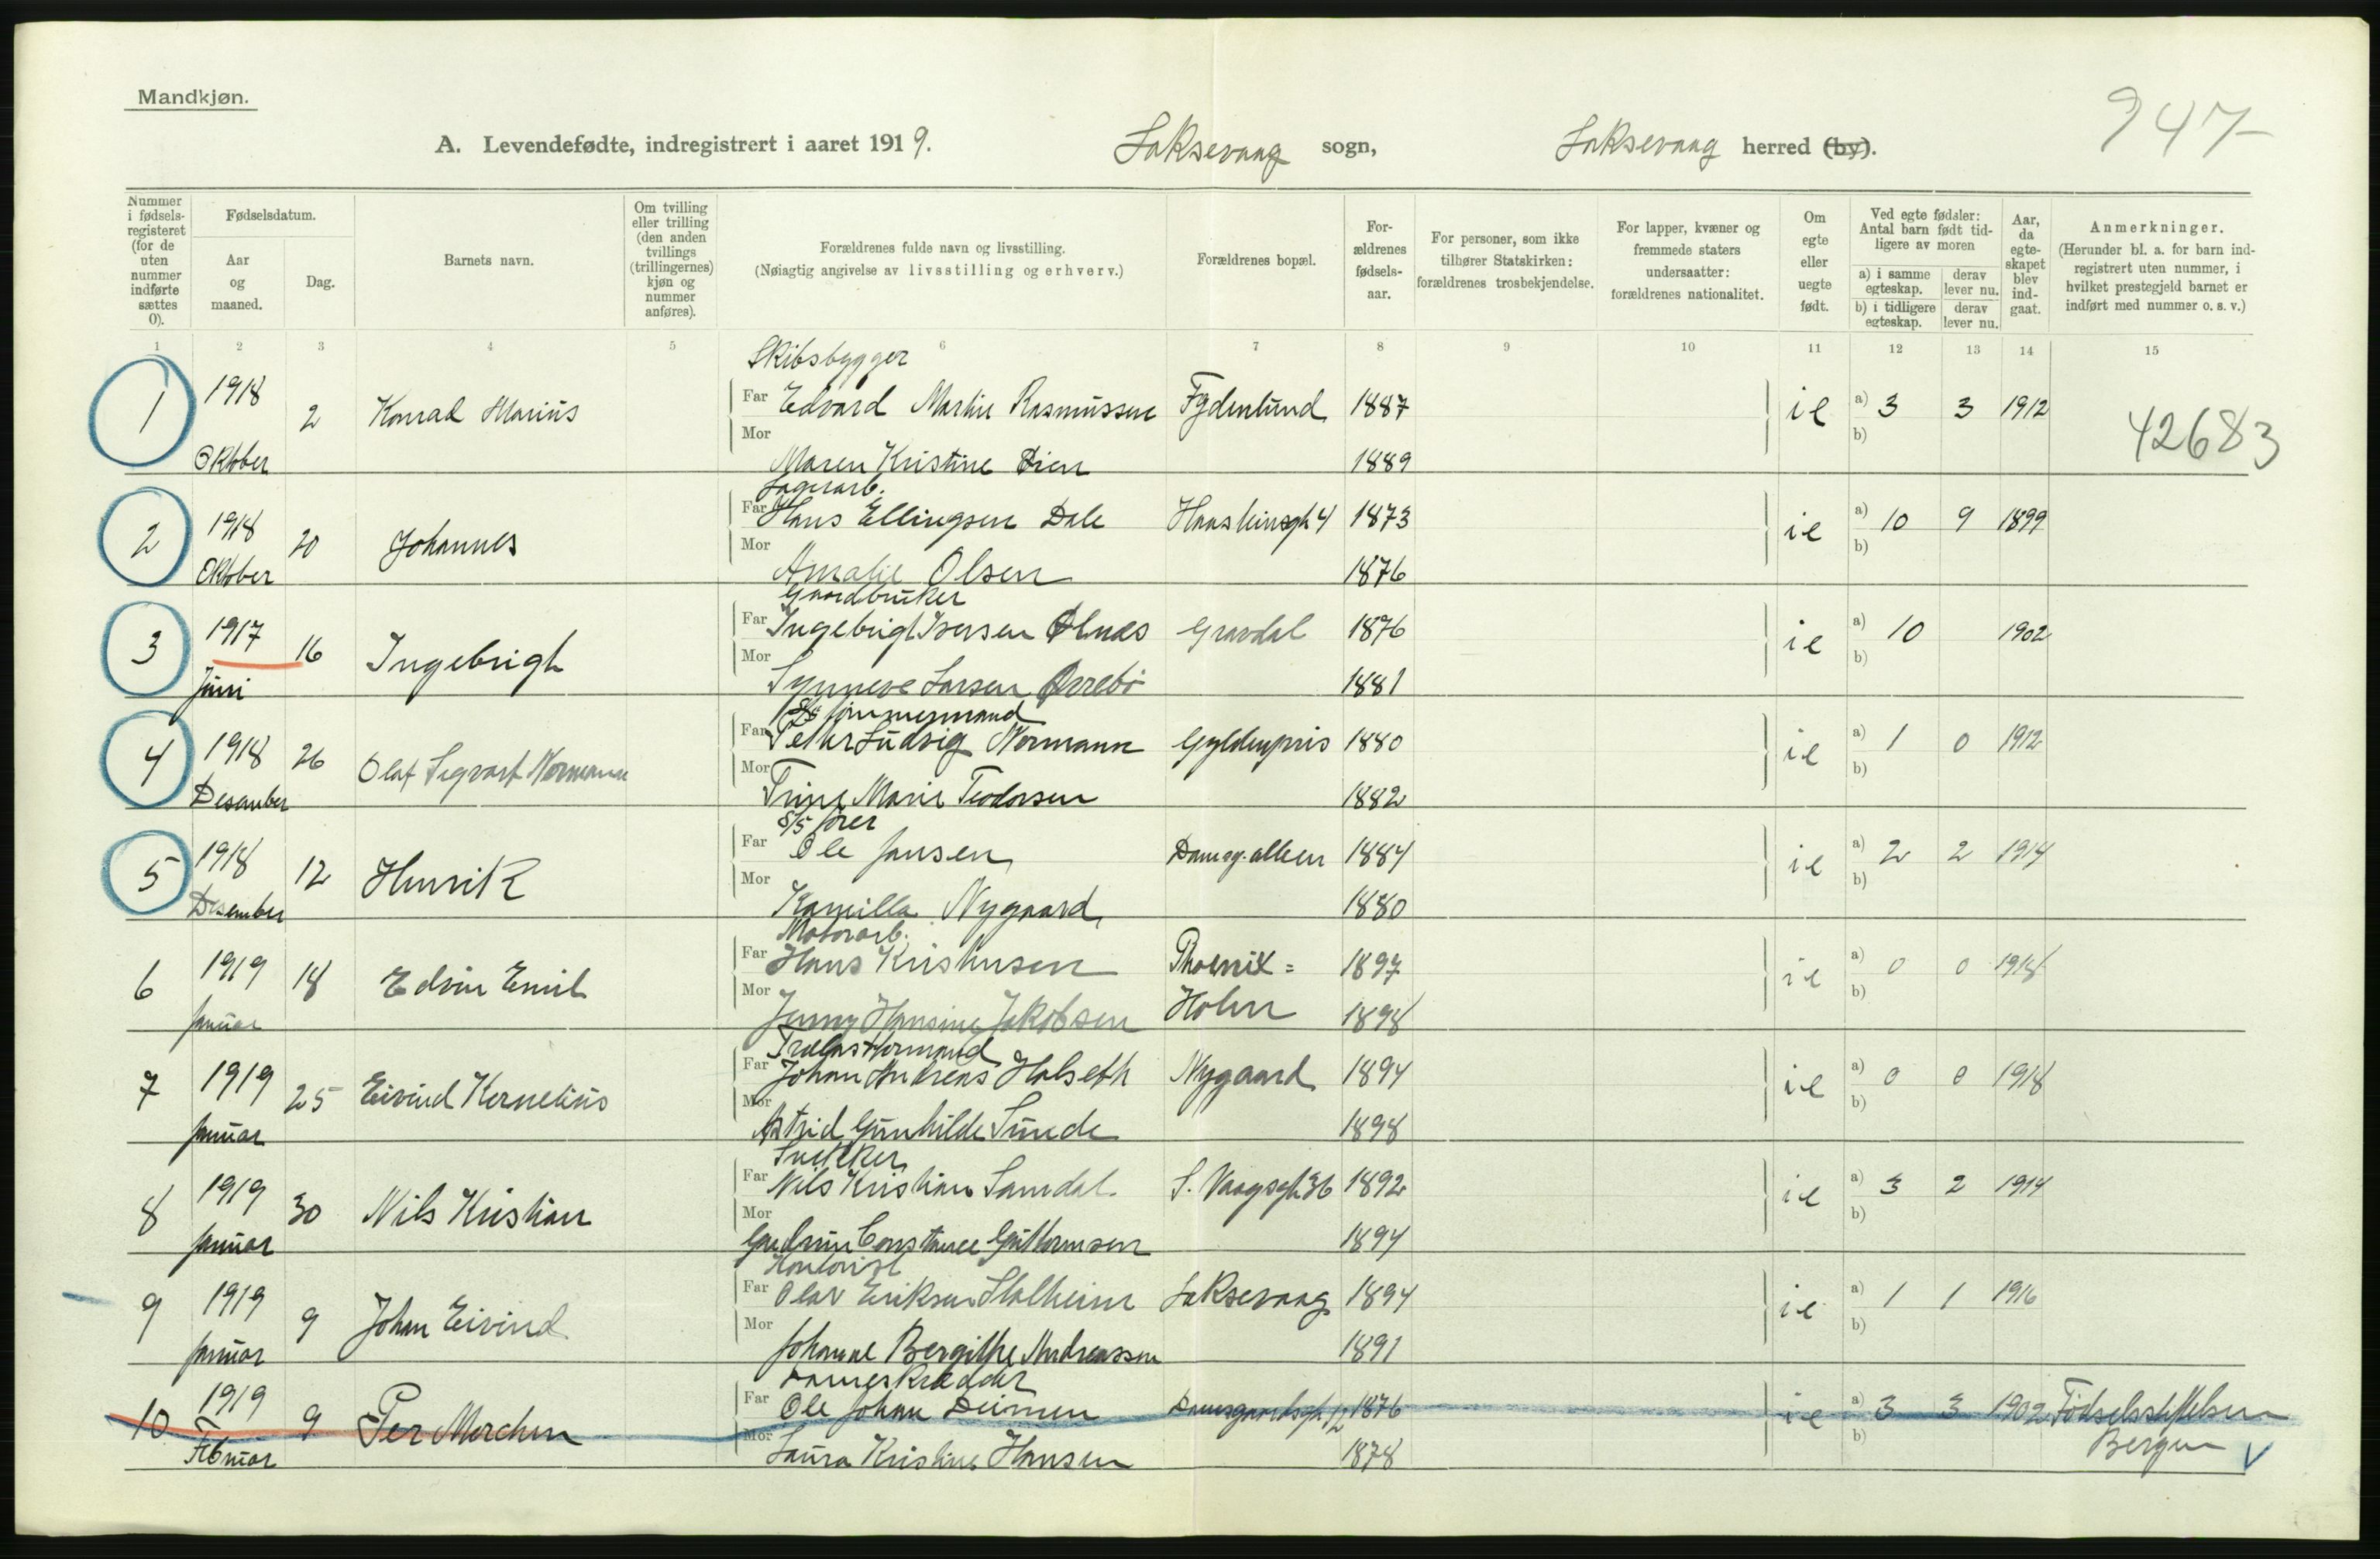 Mandkjøn.
947
A. Levendefødte, indregistrert i aaret 1919. Laksevaag sogn, Laksevaag herred (by).
Nummer i fødselsregisteret (for de uten nummer indførte sættes 0).
Fødselsdatum.
Aar og maaned.
Dag.
Barnets navn.
Om tvilling eller trilling (den anden tvillings (trillingernes) kjøn og nummer anføres).
Forældrenes fulde navn og livsstilling.
(Nøiagtig angivelse av livsstilling og erhverv.)
Forældrenes bopæl.
Forældrenes fødselsaar.
For personer, som ikke tilhører Statskirken: forældrenes trosbekjendelse.
For lapper, kvæner og fremmede staters undersaatter: forældrenes nationalitet.
Om egte eller uegte født.
Ved egte fødsler: Antal barn født tidligere av moren
a) i samme egteskap.
derav lever nu.
b) i tidligere egteskap.
derav lever nu.
Aar, da egteskapet blev indgaat.
Anmerkninger.
(Herunder bl. a. for barn indregistrert uten nummer, i hvilket prestegjeld barnet er indført med nummer o. s. v.)
1 2 3 4 5 6 7 8 9 10 11 12 13 14 15
Skibsbygger
1 1918 2 Konrad Marius Far Edvard Martin Rasmussen Fydenlund 1887 ie a) 3 3 1912 42683
Mor b)
Oktober Maren Kristine Øien 1889
Lagerarb.
2 1918 20 Johannes Far Hans Ellingsen Dale 1873 ie a) 10 9 1899
Mor b)
Oktober Amalie Olsen 1876
Gaardbruker
3 1917 16 Ingebrigt Far Ingebrigt Iversen Ølnes Gravdal 1876 ie a) 10 1902
Mor b)
Juni Synneve Larsen Orrebø 1881
tømmermand
4 1918 26 Olaf Sigvart Normann Far Peter Ludvig Normann Gyldenpris 1880 ie a) 1 0 1912
Mor b)
Desember Trine Marie Teodorsen 1882
S/S fører
5 1918 12 Henrik Far Ole Jansen Damsg. alleen 1884 ie a) 2 2 1914
Mor b)
Desember Kamilla Nygaard 1880
Motorarb.
6 1919 18 Edvin Emil Far Hans Kristensen Phoenix= 1897 ie a) 0 0 1918
Mor Holm b)
Januar Jenny Hansine Jakobsen 1898
Trælastformand
7 1919 25 Eivind Kornelius Far Johan Andreas Halseth Nygaard 1894 ie a) 0 0 1918
Mor b)
Januar Astrid Gunhilde Sunde 1898
Snekker
8 1919 30 Nils Kristian Far Nils Kristian Samdal S. Vaagsgt. 36 1892 ie a) 3 2 1914
Mor b)
Januar Gudrun Constance Guttormsen 1894
Kontorist
9 1919 9 Johan Eivind Far Olav Eriksen Stalheim Laksevaag 1894 ie a) 1 1 1916
Mor b)
Januar Johanne Bergithe Andreassen 1891
Dameskrædder
10 1919 9 Per Merchen Far Ole Johan Deimen Damsgaardsgt. 1876 ie a) 3 3 1902 Fødselsstiftelsen
Mor b) Bergen
Februar Laura Kristine Hansen 1878